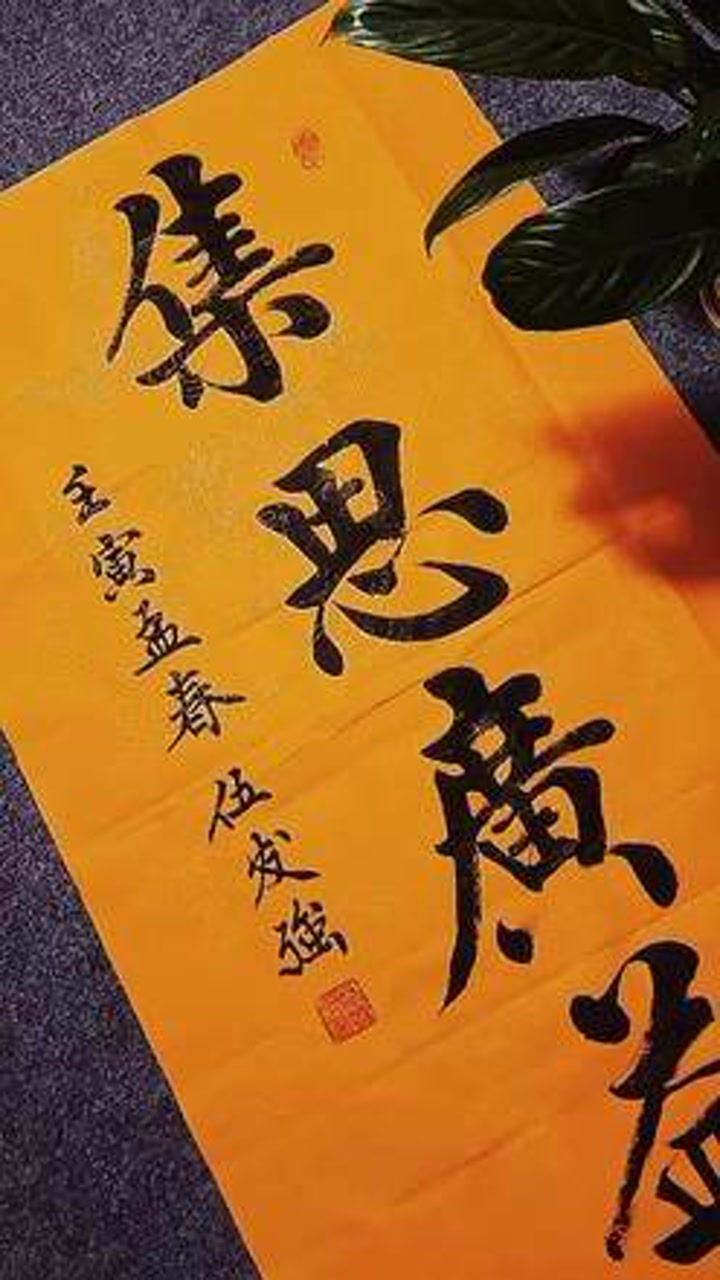 集思廣益
壬寅孟春 伍发強